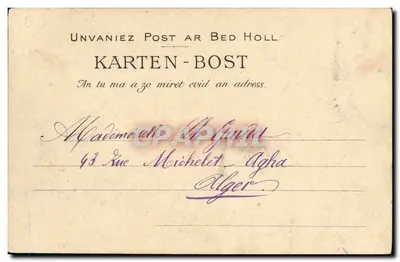 UNVANIEZ POST AR BED HOLL
KARTEN-BOST
An tu ma a zo miret evid an adress.
Mademoiselle
43 Rue Michelet - Agha
Alger.